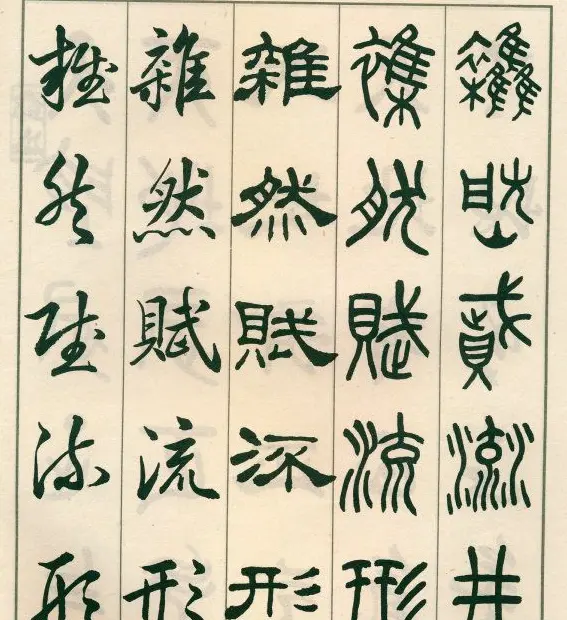 雜然賦流形
雜然賦流形
雜然賦流形
雜然賦流形
雜然賦流形